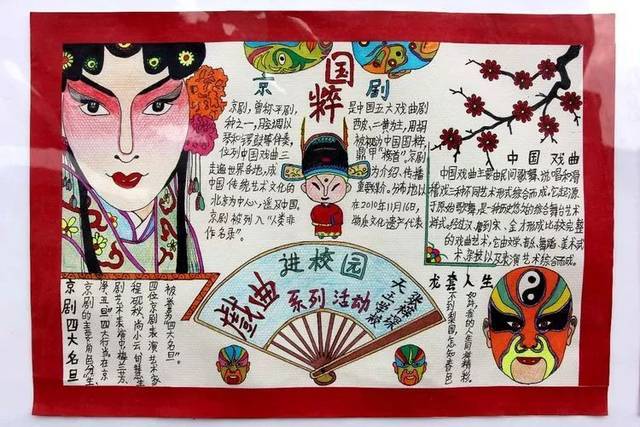 国粹
京剧
京剧,曾称平剧,是中国五大戏曲剧
种之一,用腔调以西皮、二黄为主,用胡
琴和锣鼓等伴奏,被视为中国国粹,
位列中国戏曲三鼎甲"榜首",京剧
走遍世界各地,成为介绍、传播
中国传统艺术文化的重要媒介。分布地以
北京为中心,遍及中国,在2010年11月16日,
京剧被列入"人类非物质文化遗产代表
作名录"。
中国戏曲
中国戏曲主要由民间歌舞、说唱和滑
稽戏三种不同艺术形式综合而成。它起源
于原始歌舞,是一种历史悠久的综合舞台艺术
样式。经过汉、唐到宋、金才形成比较完整
的戏曲艺术,它由文学、音乐、舞蹈、美术、武
术、杂技以及表演艺术综合而成。
进校园
戲曲
系列活动
京剧四大名旦
京剧的主要角色分"生、
净、丑"四大行当在京
剧艺术表演中梅兰芳
程砚秋、尚小云、荀慧生
四位京剧表演艺术家
被誉为"四大名旦"。
龙套人生
我的人生同样精彩。
不到梨园,怎知春色